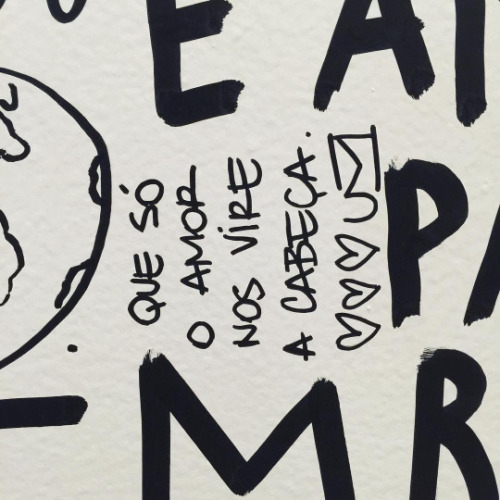 E A
QUE SÓ
O AMOR
NOS VIRE
A CABEÇA.
PA
MR